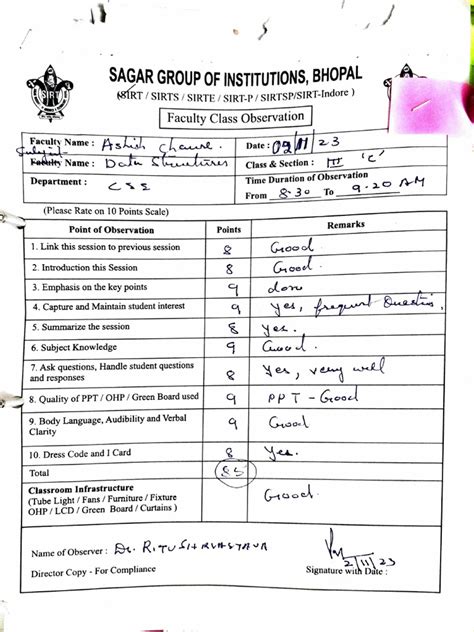 SAGAR GROUP OF INSTITUTIONS, BHOPAL
(SIRT / SIRTS / SIRTE / SIRT-P / SIRTSP/SIRT-Indore )
SIRT
Faculty Class Observation
Faculty Name : Ashish Chaure.
Date : 02/11/23
Subject
Faculty Name : Data Structures
Class & Section : III 'C'
Department : CSE
Time Duration of Observation
From 8.30 To 9.20 AM
(Please Rate on 10 Points Scale)
Point of Observation Points Remarks
1. Link this session to previous session 8 Good
2. Introduction this Session 8 Good.
3. Emphasis on the key points 9 done
4. Capture and Maintain student interest 9 Yes, frequent Questions,
5. Summarize the session 8 Yes.
6. Subject Knowledge 9 Good.
7. Ask questions, Handle student questions
and responses 8 Yes, very well
8. Quality of PPT / OHP / Green Board used 9 PPT - Good
9. Body Language, Audibility and Verbal
Clarity 9 Good
10. Dress Code and I Card 8 Yes.
Total 85
Classroom Infrastructure
(Tube Light / Fans / Furniture / Fixture
OHP / LCD / Green Board / Curtains ) Good.
Name of Observer : Dr. RITU SHRIVASTAVA
2/11/23
Director Copy - For Compliance
Signature with Date :